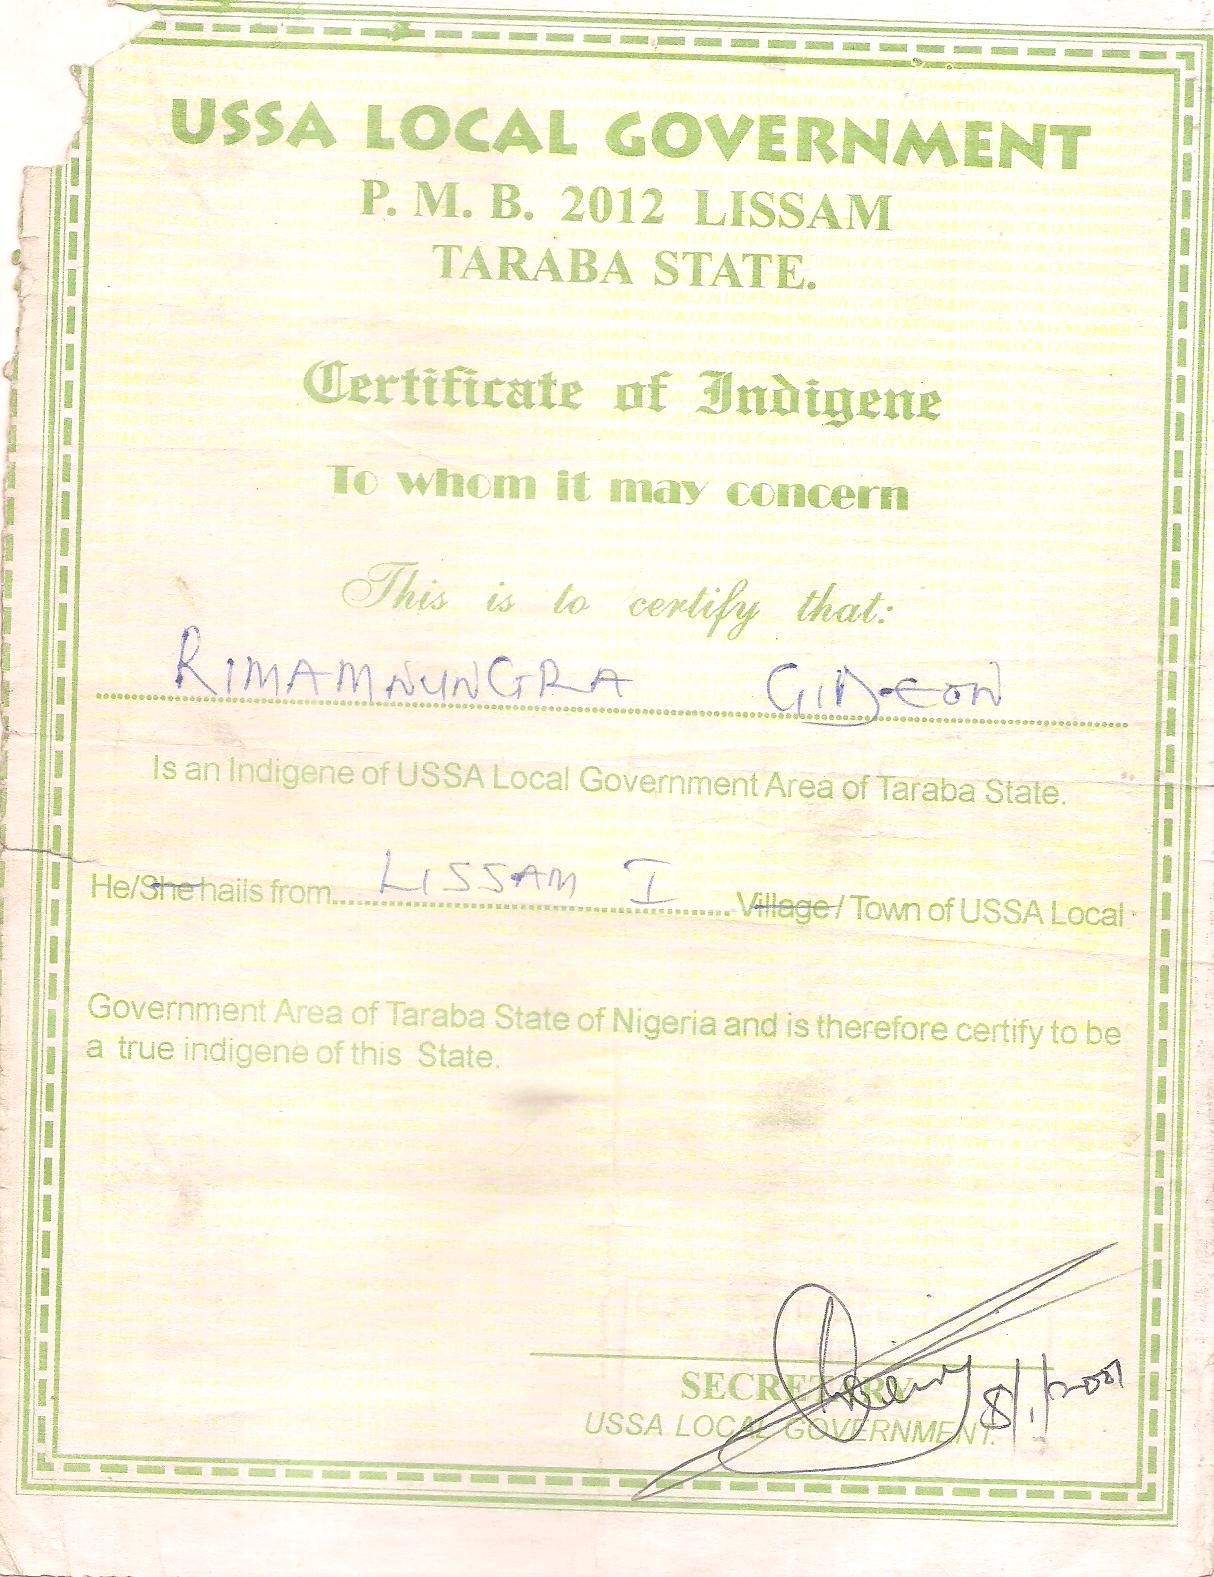 USSA LOCAL GOVERNMENT
P. M. B. 2012 LISSAM
TARABA STATE.
Certificate of Indigene
To whom it may concern
This is to certify that:
RIMAMNUNGRA GIDEON
Is an Indigene of USSA Local Government Area of Taraba State.
He/She hails from LISSAM I Village / Town of USSA Local
Government Area of Taraba State of Nigeria and is therefore certify to be
a true indigene of this State.
SECRETARY 8/1/2001
USSA LOCAL GOVERNMENT.